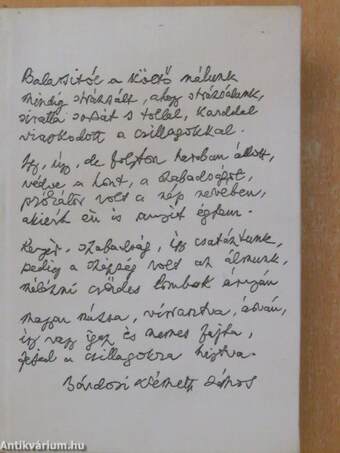 Balassitól a költő nálunk
mindig strázsált, ahogy strázsálunk,
siratta sorsát s tollal, karddal
viaskodott a csillagokkal.
Így, így, de folyton harcban állott,
védve a hont, a szabadságot,
prókátor volt a nép nevében,
akiért én is annyit égtem.
Regér, szabadság, így csatáztunk,
pedig a szépség volt az álmunk,
nézni csöndes lombok árnyán
magyar múzsa, virrasztva, árván,
így vagy igaz és nemes fajta,
fejed a csillagokra hajtva.
Bárdosi Németh János
Antikvárium.hu
antikvarium.hu